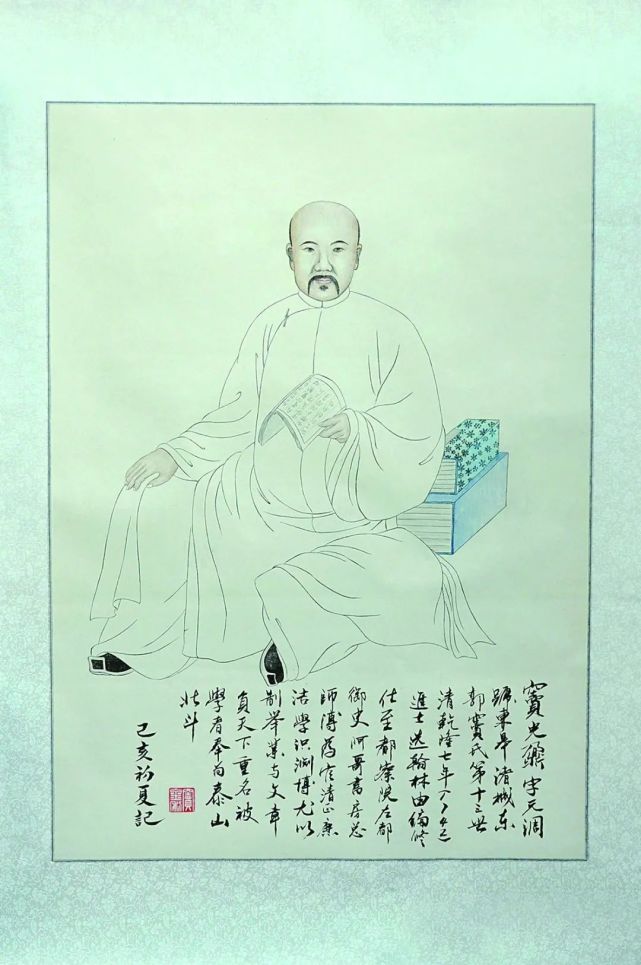 竇光鼐字元調
號東皋诸城東
郭竇氏第十三世
清乾隆七年(1742)
進士选翰林由编修
仕至都察院左都
御史阿哥書房总
師傅為官清正廉
洁學识渊博尤以
制举業与文章
負天下重名被
學者奉为泰山
北斗
己亥初夏記